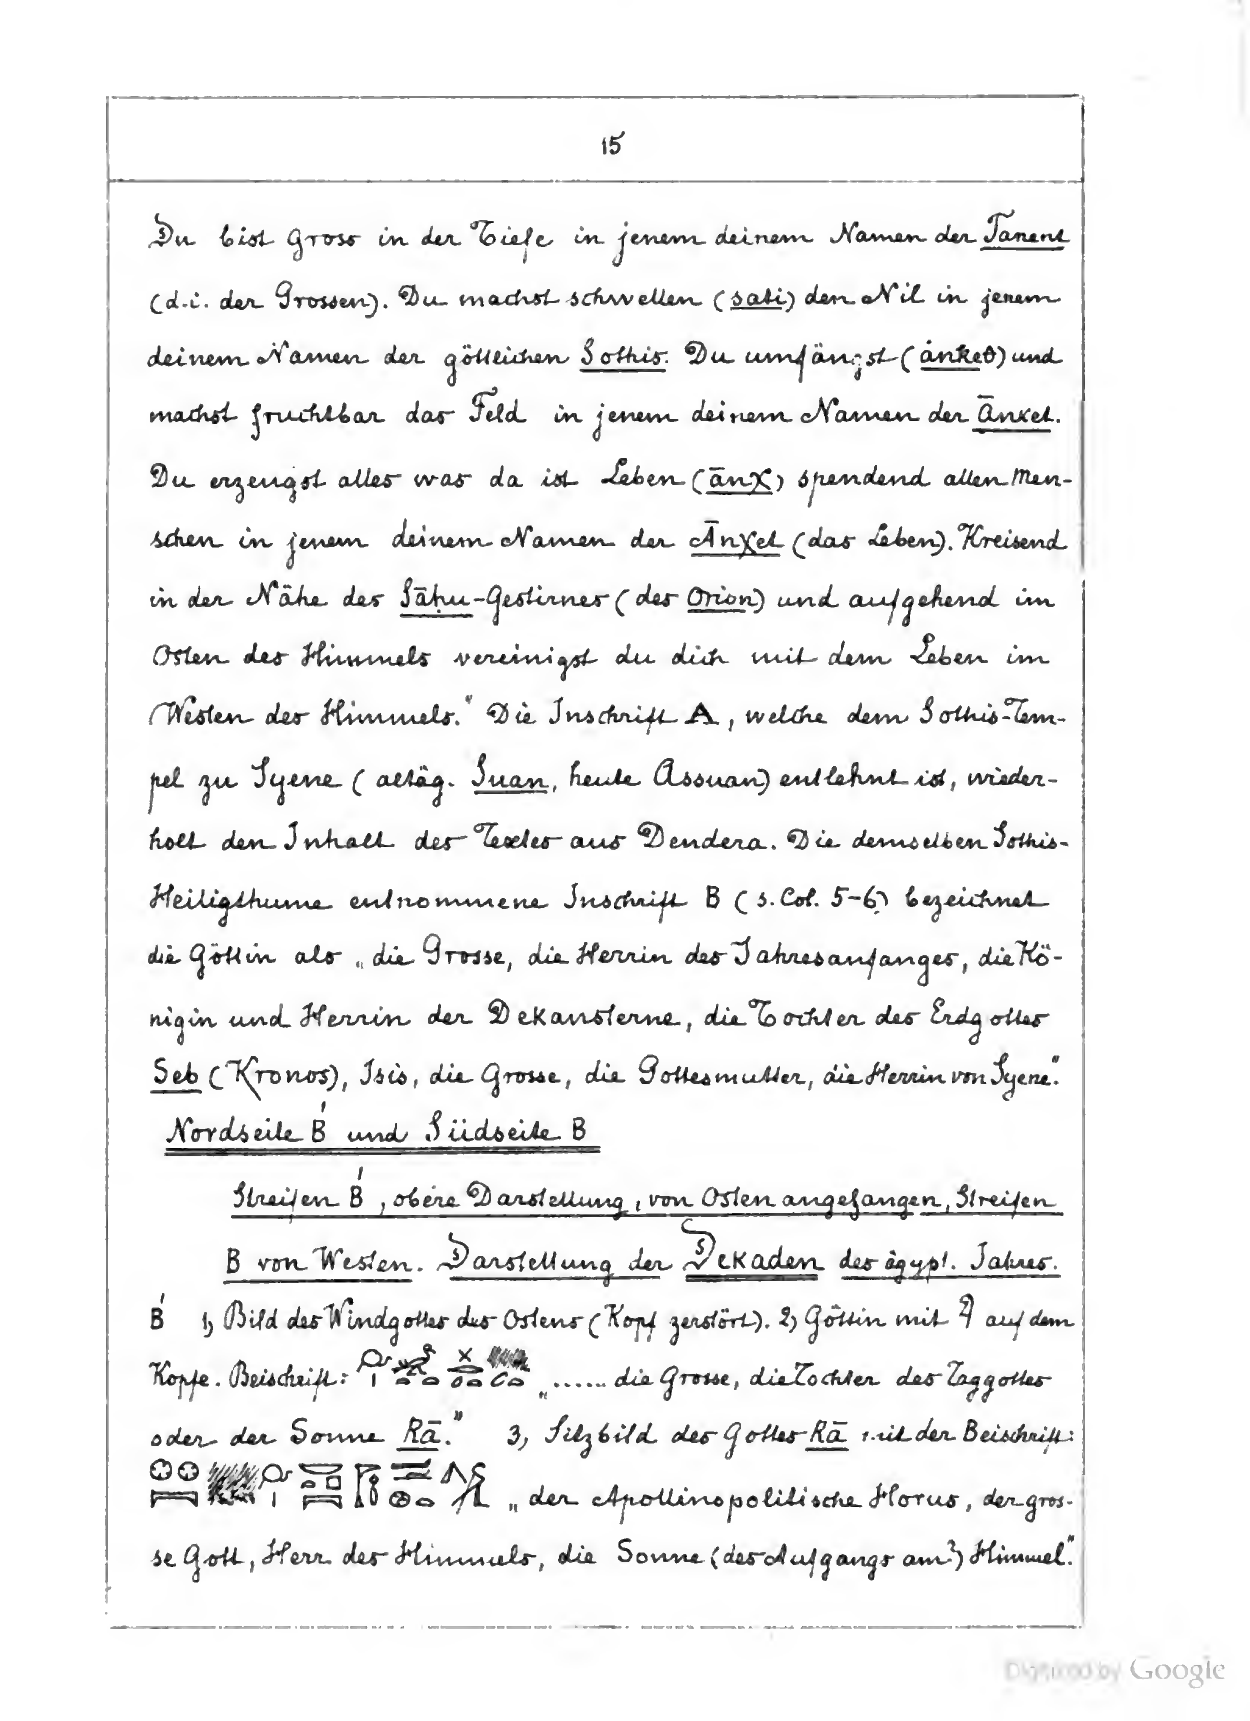 15
Du bist gross in der Tiefe in jenem deinem Namen der Tanent
(d.i. der Grossen). Du machst schwellen (sati) den Nil in jenem
deinem Namen der göttlichen Sothis. Du umfängst (ánket) und
machst fruchtbar das Feld in jenem deinem Namen der Ānket.
Du erzeugst alles was da ist Leben (ānχ) spendend allen Men-
schen in jenem deinem Namen der Ānχet (das Leben). Kreisend
in der Nähe des Sāḥu-Gestirnes (des Orion) und aufgehend im
Osten des Himmels vereinigst du dich mit dem Leben im
Westen des Himmels." Die Inschrift A, welche dem Sothis-Tem-
pel zu Syene (altäg. Suan, heute Assuan) entlehnt ist, wieder-
holt den Inhalt des Textes aus Dendera. Die demselben Sothis-
Heiligthume entnommene Inschrift B (s. Col. 5-6) bezeichnet
die Göttin als „die Grosse, die Herrin des Jahresanfanges, die Kö-
nigin und Herrin der Dekansterne, die Tochter des Erdgottes
Seb (Kronos), Isis, die Grosse, die Gottesmutter, die Herrin von Syene."
Nordseite B' und Südseite B
Streifen B', obere Darstellung, von Osten angefangen, Streifen
B von Westen. Darstellung der Dekaden des ägypt. Jahres.
B' 1, Bild des Windgottes des Ostens (Kopf zerstört). 2, Göttin mit auf dem
Kopfe. Beischrift: „...... die Grosse, die Tochter des Taggottes
oder der Sonne Rā." 3, Sitzbild des Gottes Rā mit der Beischrift:
„der Apollinopolitische Horus, der gros-
se Gott, Herr des Himmels, die Sonne (des Aufgangs am?) Himmel."
Digitized by Google